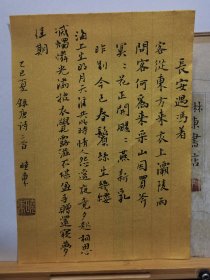 長安遇馮著
客從東方来衣上灞陵雨
問客何為来采山因買斧
冥々花正開颺々燕新乳
昨別今已春鬢絲生幾縷
海上生明月天涯共此時情人怨遥夜竟夕起相思
滅燭憐光滿披衣覺露滋不堪盈手贈還寢夢
佳期
乙巳夏錄唐詩二首